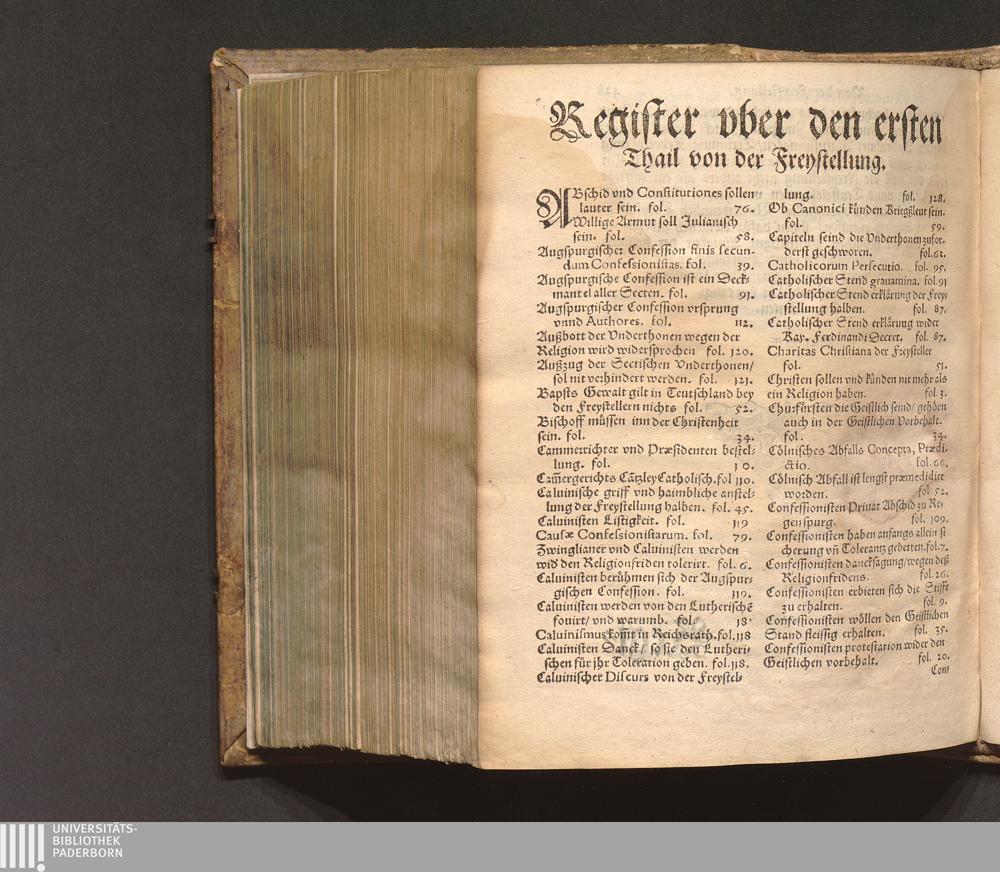 Register vber den ersten
Thail von der Freystellung.
ABschid vnd Constitutiones sollen
lauter sein. fol. 76.
Willige Armut soll Julianisch
sein. fol. 58.
Augspurgischer Confession finis secun-
dum Confessionistas. fol. 39.
Augspurgische Confession ist ein Deck-
mantel aller Secten. fol. 91.
Augspurgischer Confession vrsprung
vnnd Authores. fol. 112.
Außbott der Vnderthonen wegen der
Religion wird widersprochen fol. 120.
Außzug der Sectischen Vnderthonen/
sol nit verhindert werden. fol. 121.
Bapsts Gewalt gilt in Teutschland bey
den Freystellern nichts fol. 52.
Bischoff müssen inn der Christenheit
sein. fol. 34.
Cammerrichter vnd Præsidenten bestel-
lung. fol. 10.
Cam̃ergerichts Cãtzley Catholisch. fol 110.
Caluinische griff vnd haimbliche anstel-
lung der Freystellung halben. fol. 45.
Caluinisten Listigkeit. fol. 119
Causæ Confessionistarum. fol. 79.
Zwinglianer vnd Caluinisten werden
wid den Religionfriden tolerirt. fol. 6.
Caluinisten berühmen sich der Augspur-
gischen Confession. fol. 119.
Caluinisten werden von den Lutherischẽ
fouirt/ vnd warumb. fol. 18.
Caluinismus kom̃t in Reichsrath. fol. 118
Caluinisten Danck/ so sie den Lutheri-
schen für ihr Toleration geben. fol. 118.
Caluinischer Discurs von der Freystel-
lung. fol. 128.
Ob Canonici künden Kriegßleut sein.
fol. 59.
Capiteln seind die Vnderthonen zufor-
derst geschworen. fol. 62.
Catholicorum Persecutio. fol. 95.
Catholischer Stend grauamina. fol. 91
Catholischer Stend erklärung der Frey-
stellung halben. fol. 87.
Catholischer Stend erklärung wider
Kay. Ferdinandi Decret. fol. 87.
Charitas Christiana der Freysteller
fol. 51.
Christen sollen vnd künden nit mehr als
ein Religion haben. fol 3.
Churfürsten die Geistlich seind/ gehörn
auch in der Geistlichen Vorbehalt.
fol. 34.
Cölnisches Abfalls Concepta, Prædi-
ctio. fol. 66.
Cölnisch Abfall ist lengst præmedidirt
worden. fol 52.
Confessionisten Priuat Abschid zu Re-
genspurg. fol. 109.
Confessionisten haben anfangs allein si
cherung vñ Tolerantz gebetten. fol. 7.
Confessionisten dancksagung/ wegen deß
Religionfridens. fol. 26.
Confessionisten erbieten sich die Stifft
zu erhalten. fol. 9.
Confessionisten wöllen den Geistlichen
Stand fleissig erhalten. fol. 35.
Confessionisten protestation wider den
Geistlichen vorbehalt. fol. 20.
Conf
UNIVERSITÄTS-
BIBLIOTHEK
PADERBORN